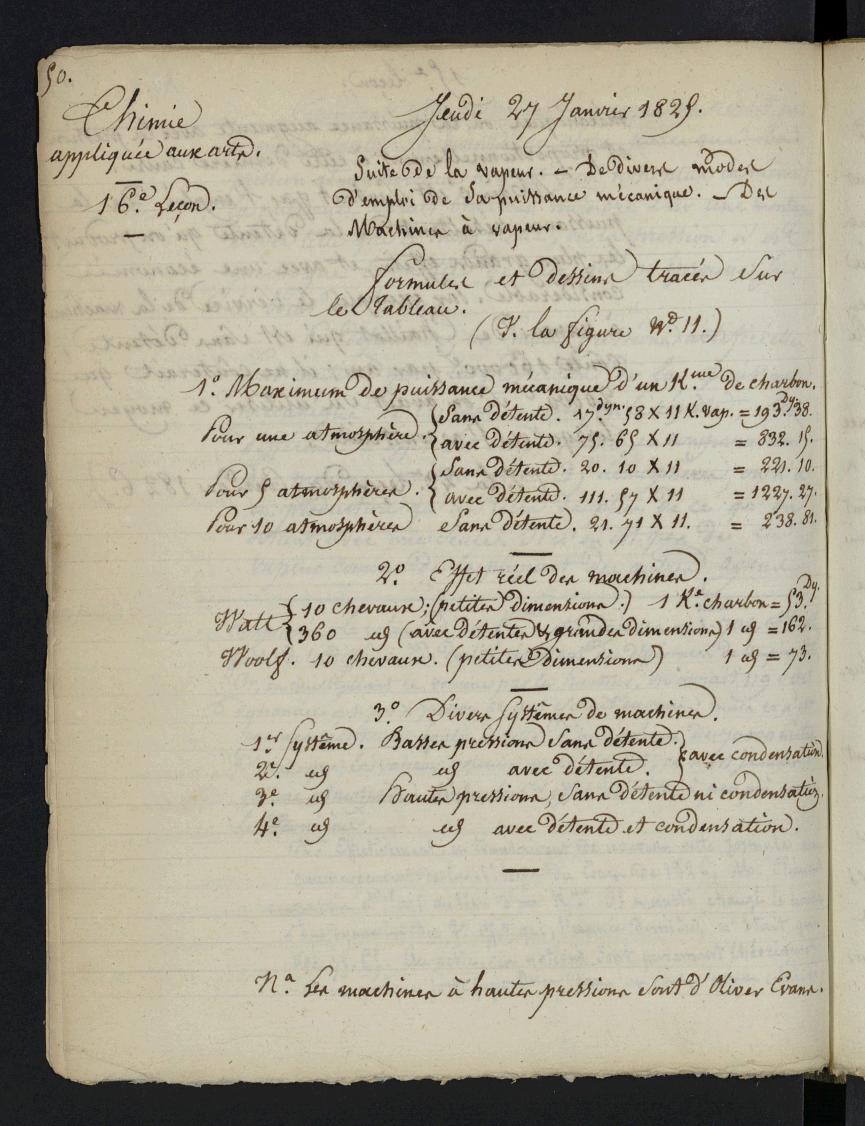 50.
Chimie
appliquée aux arts.
16.e Leçon.
Jeudi 27 Janvier 1825.
Suite de la vapeur. – De divers modes
d'emploi de sa puissance mécanique. – Des
Machines à vapeur.
Formules et dessins tracés sur
le Tableau.
(V. la figure N.o 11.)
1.o Maximum de puissance mécanique d'un K.me de charbon.
Pour une atmosphère. { Sans détente. 17.dyn. 58 X 11 K. vap. = 193.Dy 38.
avec détente. 75. 65 X 11 = 832. 15.
Pour 5 atmosphères. { Sans détente. 20. 10 X 11 = 221. 10.
avec détente. 111. 57 X 11 = 1227. 27.
Pour 10 atmosphères Sans détente. 21. 71 X 11. = 238. 81.
2.o Effet réel des machines.
Watt { 10 chevaux; (petites Dimensions.) 1 K.e charbon = 53.Dy.
360 id (avec Détentes & grandes dimensions) 1 id = 162.
Woolf. 10 chevaux. (petites Dimensions) 1 id = 73.
3.o Divers systêmes de machines.
1.er systême. Basses pressions sans détente. } avec condensation.
2.e id id avec détente.
3.e id Hautes pressions, sans détente ni condensation.
4.e id id avec détente et condensation.
N.a Les machines à hautes pressions sont d'Oliver Evans.